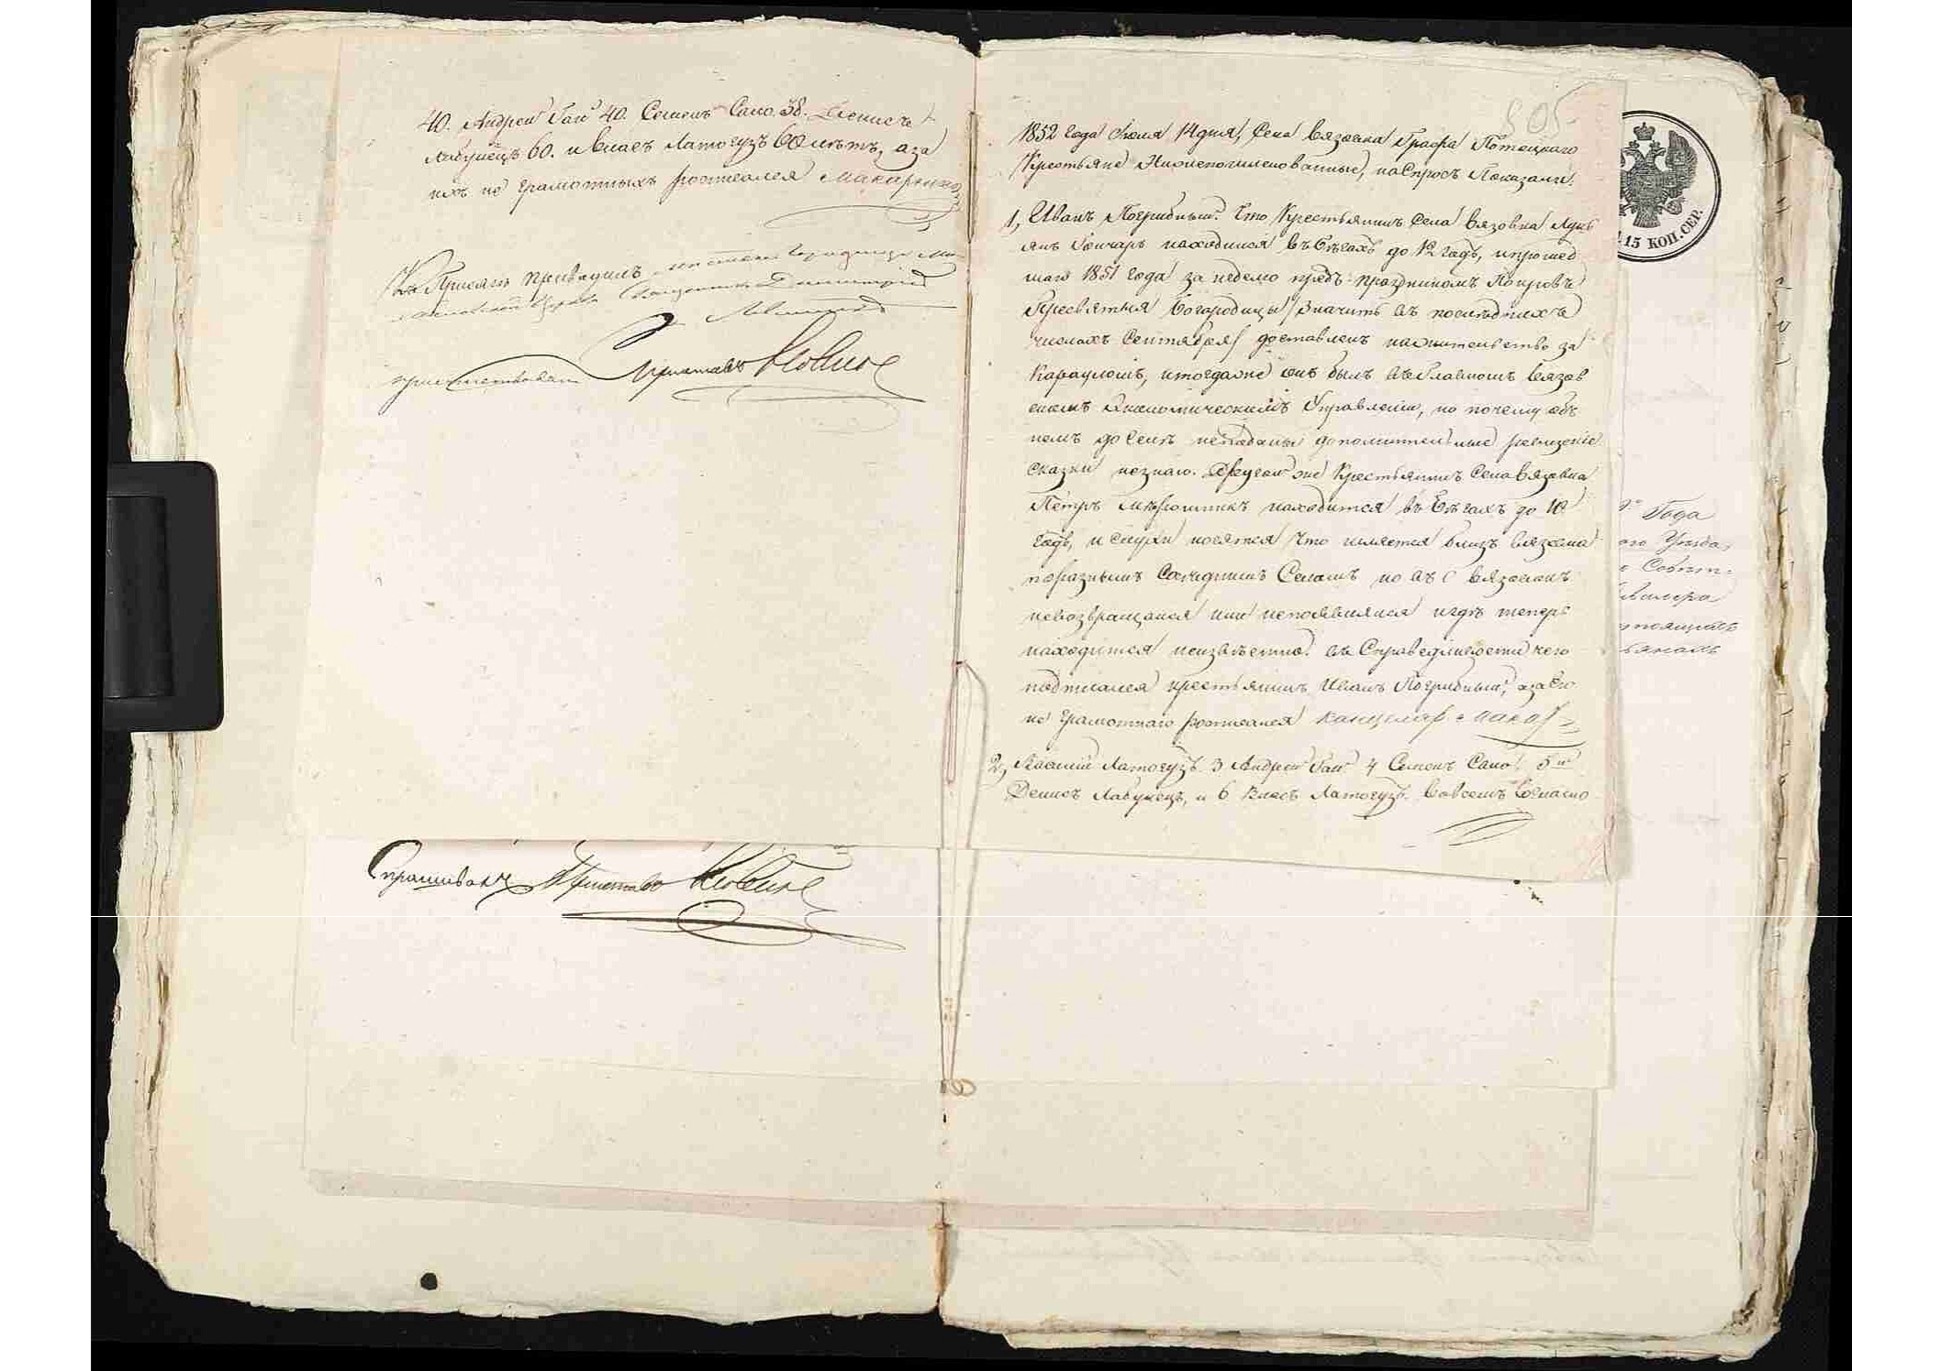 40. Андрей Гай 40. Семенъ Сало 38. Дениса
Лабунецъ 60. и Власъ Латогузъ 60 летъ, а за
ихъ не грамотныхъ росписался Макаренко
Къ Присягѣ приводилъ
Священникъ Димитрій
присутствовалъ Приставъ
Спрашивалъ Приставъ
505.
1852 года Іюля 14 дня, Села Вязовка Графа Потоцкаго
Крестьяне Нижепоименованные, на Спросъ Показали:
1, Иванъ Погрибный. Что Крестьянинъ Села Вязовка Лукь
янъ Гончаръ находился въ Бѣгахъ до 12 годъ, и прошед
шаго 1851 года за неделю предъ праздникомъ Покровъ
Пресвятыя Богородицы / Значитъ въ последнихъ
числахъ Сентября / доставленъ на жительство за
Карауломъ, и тогда же онъ былъ въ Главномъ Вязов
скомъ Экономическомъ Управленіи, но почему объ
немъ до сихъ не поданы дополнительные ревизскіе
сказки не знаю. Другой же Крестьянинъ Села Вязовка
Петръ Мирошникъ находится въ Бѣгахъ до 10
годъ, и Слухи носятся что шляется близъ Вязовка
по разнымъ Соседнимъ Селамъ но въ С. Вязовкѣ
не возвращался или не появлялся и где теперь
находится неизвѣстно. Въ Справедливости чего
подписался крестьянинъ Иванъ Погрибный, а за его
не грамотнаго росписался канцеляр. Макар
2, Василій Латогузъ 3 Андрей Гай 4 Семенъ Сало 5й
Денисъ Лабунецъ, и 6 Власъ Латогузъ. Во всемъ Согласно
15 КОП. СЕР.
Года
Уѣзда